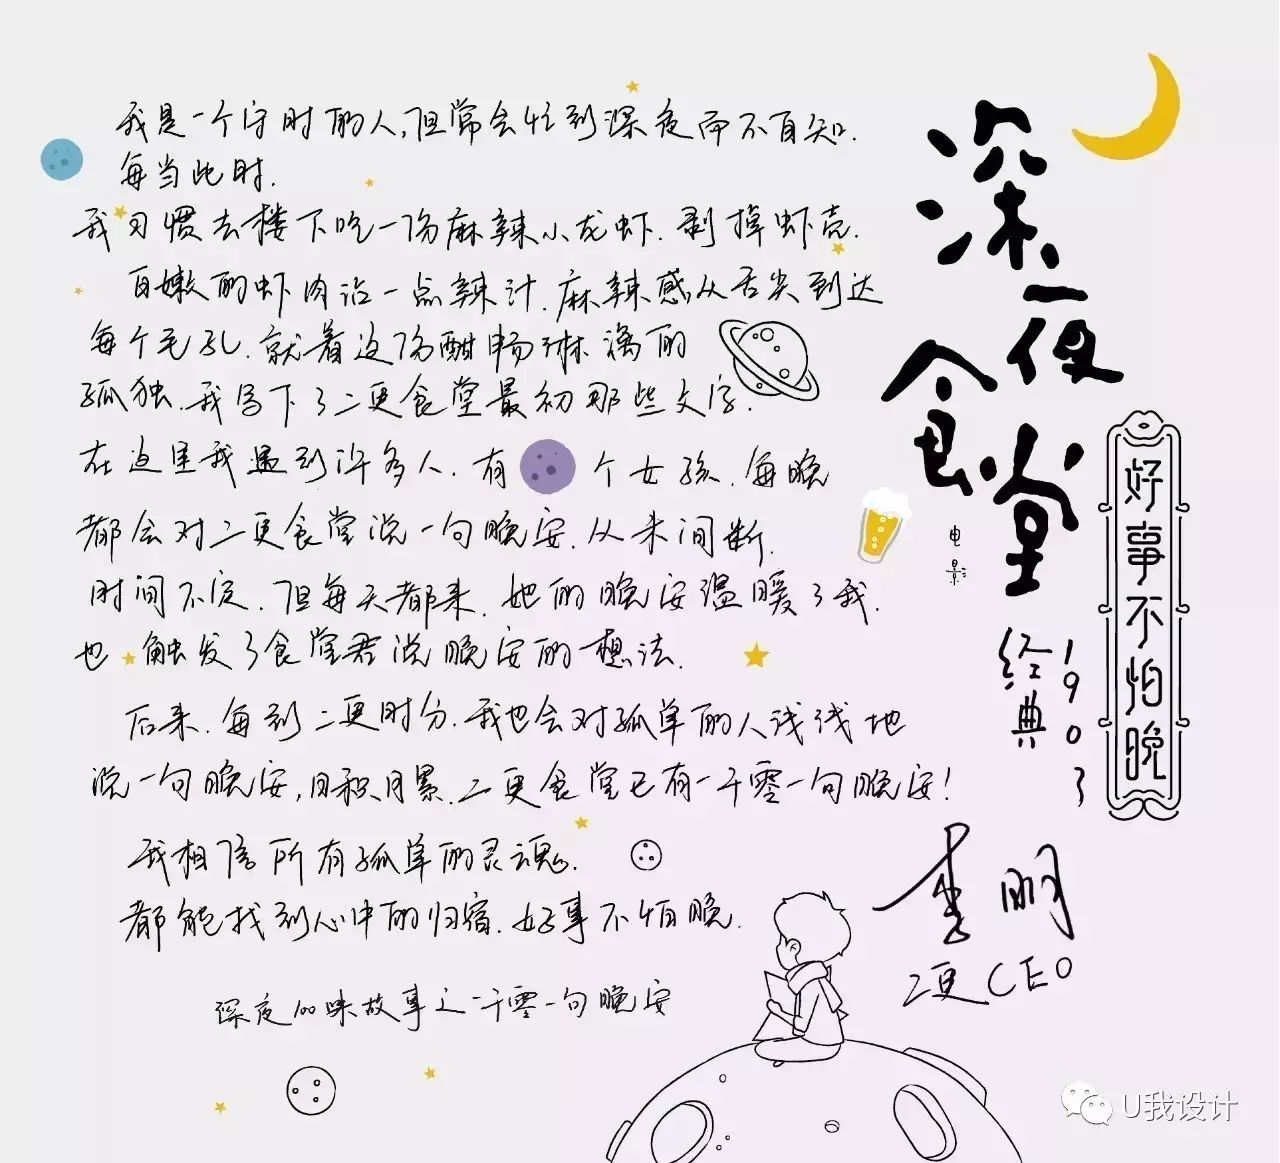 我是一个守时的人,但常会忙到深夜而不自知.
每当此时.
我习惯去楼下吃一份麻辣小龙虾.剥掉虾壳.
白嫩的虾肉沾一点辣汁.麻辣感从舌尖到达
每个毛孔.就着这份酣畅淋漓的
孤独.我写下了二更食堂最初那些文字.
在这里我遇到许多人.有 个女孩.每晚
都会对二更食堂说一句晚安.从未间断.
时间不定.但每天都来.她的晚安温暖了我.
也触发了食堂君说晚安的想法.
后来.每到二更时分.我也会对孤单的人浅浅地
说一句晚安,日积月累.二更食堂已有一千零一句晚安!
我相信所有孤单的灵魂.
都能找到心中的归宿.好事不怕晚.
深夜100味故事之一千零一句晚安
深夜食堂
电影
经典
1903
好事不怕晚
李明
二更CEO
U我设计